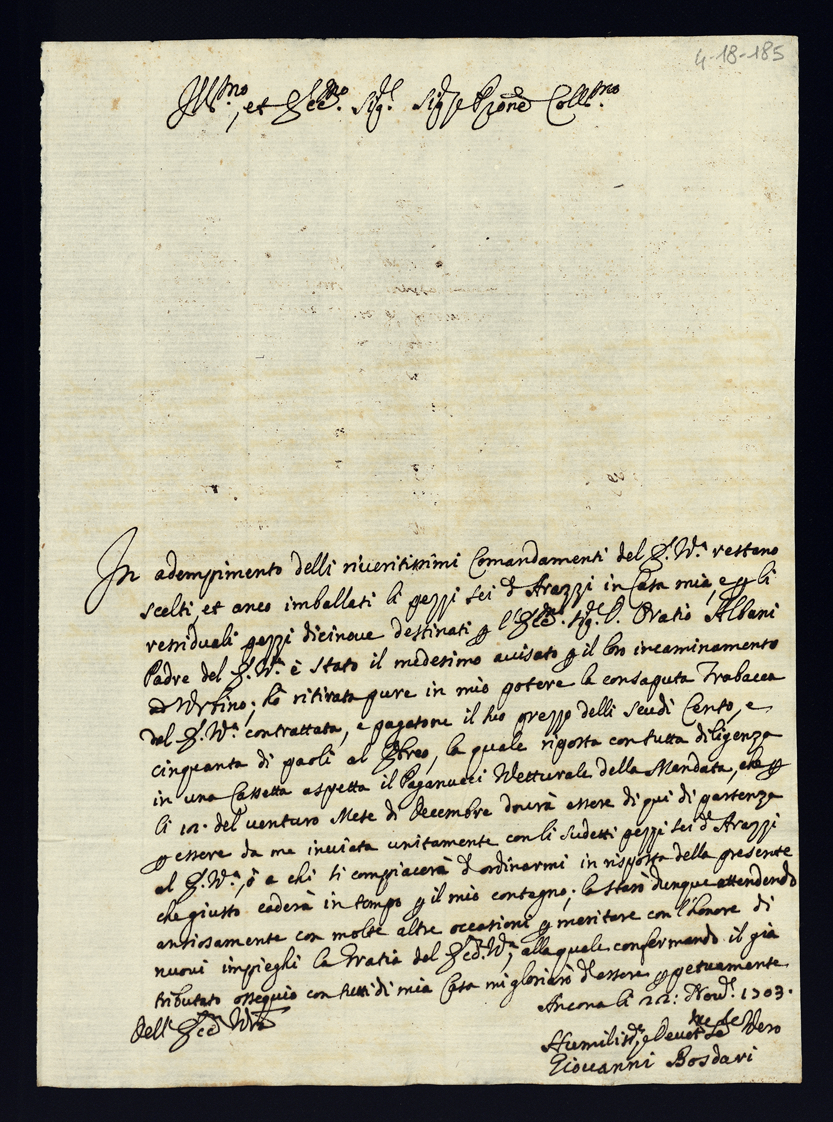 4-18-185
Ill.mo, et Ecc.mo Sig.r Sig.r e Pron̄e Coll.mo
In adempimento delli riveritissimi Comandamenti del E. V.ra restano
scelti, et anco imballati li pezzi sei d'Arazzi in Casa mia, e p li
retriduali pezzi dicinove destinati p l'Ecc.mo Sig.r D. Oratio Albani
Padre del E. V.ra è stato il medesimo avisato p il loro incaminamento
ad Urbino; hò ritirata pure in mio potere la consaputa Trabacca
del E. V.ra contrattata, e pagatone il suo prezzo delli scudi Cento, e
cinquanta di paoli al Ebreo, la quale riposta con tutta diligenza
in una Cassetta aspetta il Paganucci Vetturale della Mandata, che p
li 12. del venturo Mese di Decembre dourà essere di qui di partenza
p essere da me inviata unitamente con li sudetti pezzi sei d'Arazzi
al E. V.ra, ò a chi si compiacerà d'ordinarmi in risposta della presente
che giusto caderà in tempo p il mio contagno; la starò dunque attendendo
ansiosamente con molte altre occasioni p meritare con l'honore di
nuovi impieghi la Gratia del Ecc. V.ra, alla quale confermando il già
tributato ossequio con tutti di mia Casa mi gloriarò d'essere ppetuamente
Dell' Ecc. V.ra
Ancona li 22: Nov.e 1703.
Humiliss.o, e Devot.mo Se.re Vero
Giovanni Bosdari